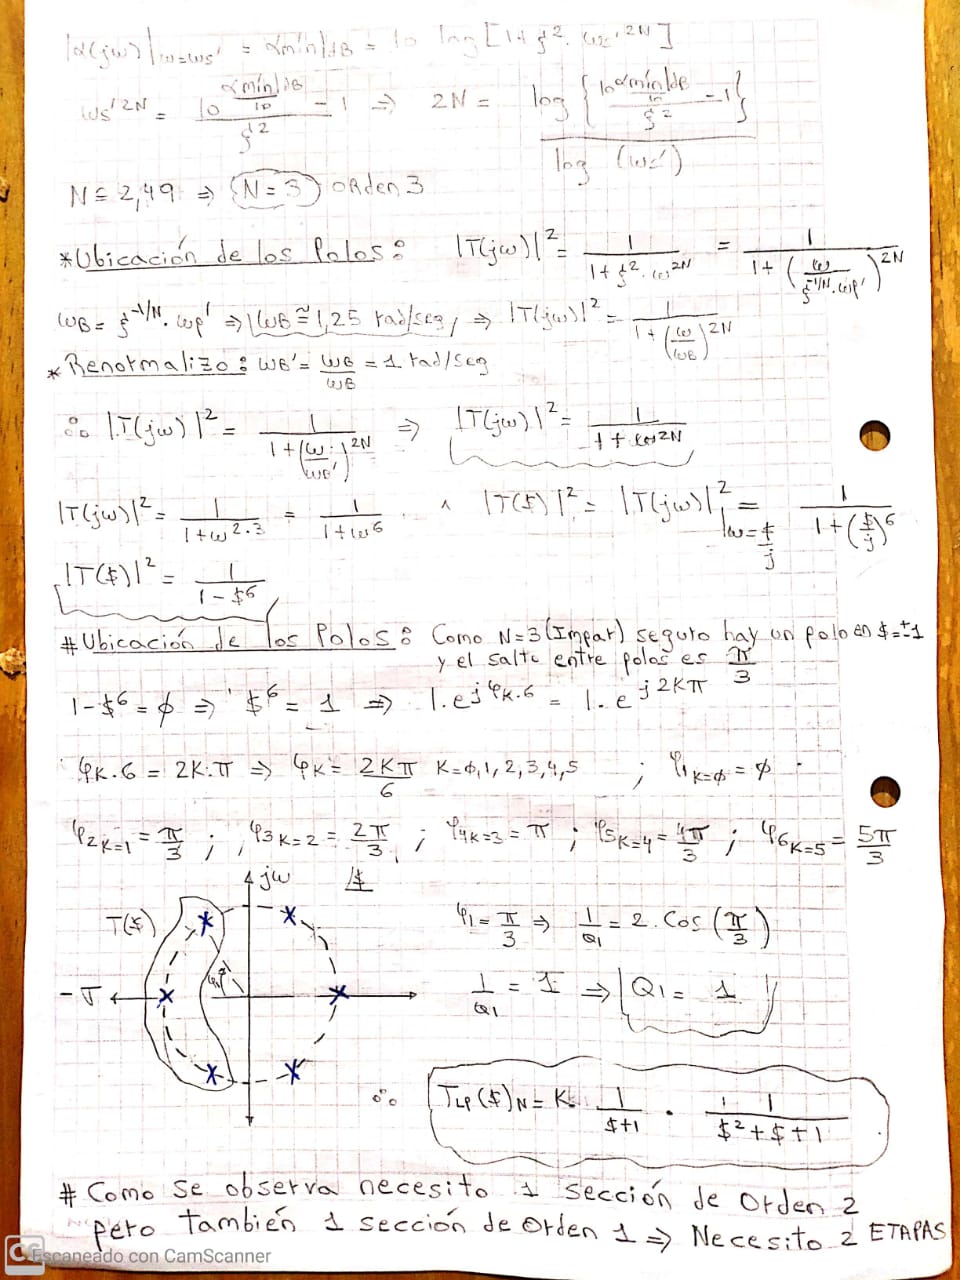 |α(jω)|ω=ωs' = αmín|dB = 10 log [1+ξ². ωs'^2N]
ωs'^2N = (10^(αmín|dB/10) - 1)/ξ² ⇒ 2N = log {(10^(αmín|dB/10) - 1)/ξ²} / log (ωs')
N ≅ 2,49 ⇒ N = 3 orden 3
*Ubicación de los Polos: |T(jω)|² = 1/(1+ξ².ω^2N) = 1/(1+(ω/(ξ^-1/N.ωp'))^2N)
ωB = ξ^-1/N. ωp' ⇒ ωB ≅ 1,25 rad/seg, ⇒ |T(jω)|² = 1/(1+(ω/ωB)^2N)
* Renormalizo: ωB' = ωB/ωB = 1 rad/seg
∴ |T(jω)|² = 1/(1+(ω/ωB')^2N) ⇒ |T(jω)|² = 1/(1+ω^2N)
|T(jω)|² = 1/(1+ω^2.3) = 1/(1+ω^6) ∧ |T($)|² = |T(jω)|²|ω=$/j = 1/(1+($/j)^6)
|T($)|² = 1/(1-$^6)
# Ubicación de los Polos: Como N=3 (Impar) seguro hay un polo en $=±1
y el salto entre polos es π/3
1-$^6 = φ ⇒ $^6 = 1 ⇒ 1.e^(jφK.6) = 1.e^(j2Kπ)
φK.6 = 2K.π ⇒ φK = 2Kπ/6 K=φ,1,2,3,4,5 ; φ1 K=φ = φ
φ2 K=1 = π/3 ; φ3 K=2 = 2π/3 ; φ4 K=3 = π ; φ5 K=4 = 4π/3 ; φ6 K=5 = 5π/3
jω $
T($) φ1 = π/3 ⇒ 1/Q1 = 2.Cos (π/3)
-σ 1/Q1 = 1 ⇒ Q1 = 1
∴ TLP($)N = K. 1/($+1) . 1/($²+$+1)
# Como se observa necesito 1 sección de orden 2
pero también 1 sección de orden 1 ⇒ Necesito 2 ETAPAS
CS Escaneado con CamScanner